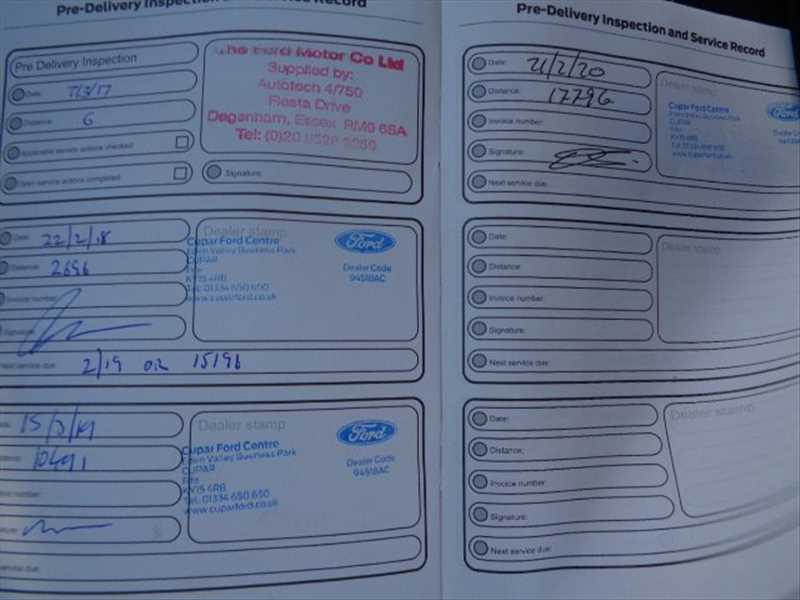 Pre-Delivery Inspection and Service Record
Pre Delivery Inspection
Date: 7/3/17
Distance: 6
Applicable service actions checked
Open service actions completed
The Ford Motor Co Ltd
Supplied by:
Autotech 4/750
Fiesta Drive
Dagenham, Essex RM9 6SA
Tel: (0)20 8526
Signature:
Date: 22/2/18
Distance: 2696
Invoice number:
Signature:
Next service due: 2/19 OR 15196
Dealer stamp
Cupar Ford Centre
Eden Valley Business Park
CUPAR
Fife
KY15 4RB
Tel: 01334 650 650
www.cuparford.co.uk
Ford
Dealer Code
94518AC
Date: 15/3/19
Distance: 10491
Invoice number:
Signature:
service due:
Dealer stamp
Cupar Ford Centre
Eden Valley Business Park
CUPAR
Fife
KY15 4RB
Tel: 01334 650 650
www.cuparford.co.uk
Ford
Dealer Code
94518AC
Pre-Delivery Inspection and Service Record
Date: 21/2/20
Distance: 17796
Invoice number:
Signature:
Next service due:
Dealer stamp
Cupar Ford Centre
Eden Valley Business Park
CUPAR
Fife
KY15 4RB
Tel: 01334 650 650
www.cuparford.co.uk
Ford
Dealer Code
Date:
Distance:
Invoice number:
Signature:
Next service due:
Dealer stamp
Date:
Distance:
Invoice number:
Signature:
Next service due:
Dealer stamp